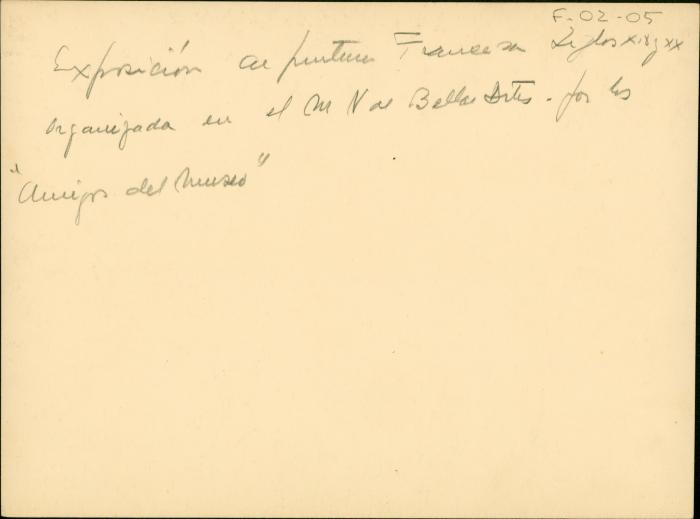 F-02-05
Exposición de pintura Francesa Siglos XIX y XX
organizada en el M N de Bellas Artes. por los
"Amigos del Museo"